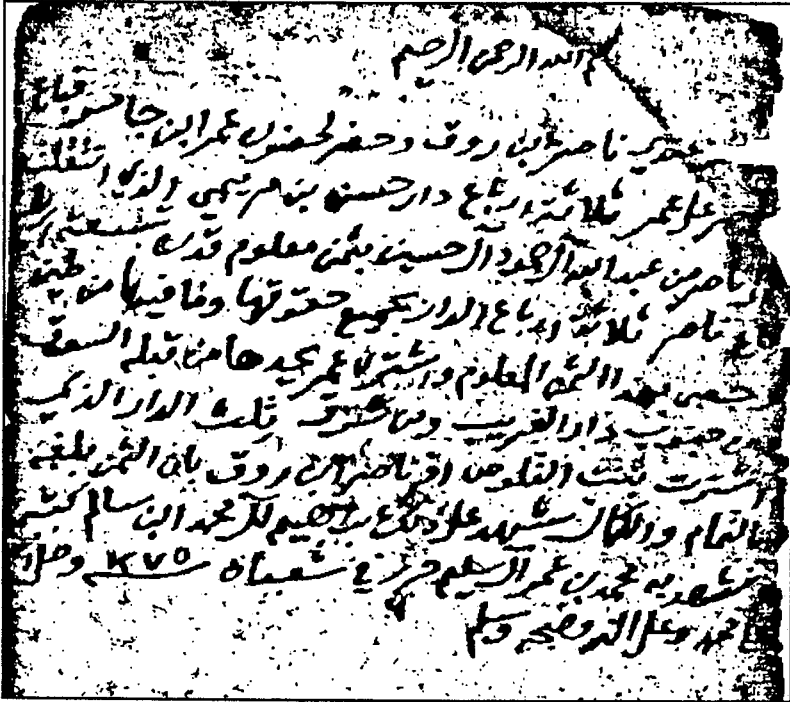 بسم الله الرحمن الرحيم
ناصر ابن روق وحضر لحضوره عمر ابن جاسر فباع
ناصر على عمر ثلاثة ارباع دار حسن بن مريمي الذي انتقلت
ناصر من عبدالله آل حمود آل حسين بثمن معلوم قدره
باع ناصر ثلاثة ارباع الدار بجميع حقوقها وما فيها من طين
وخشب بهذا الثمن المعلوم واشترى عمر يحدها من قبله السوق
ومن جنوب دار الغريب ومن شرق ثلث الدار الذي
اشترت بنت القلوص اقر ناصر ابن روق بان الثمن بلغه
بالتمام والكمال شهد على ذلك محمد ابن سالم كتبه
وشهد به محمد بن عمر السليم حرر في شعبان وصلى
محمد وعلى آله وصحبه وسلم